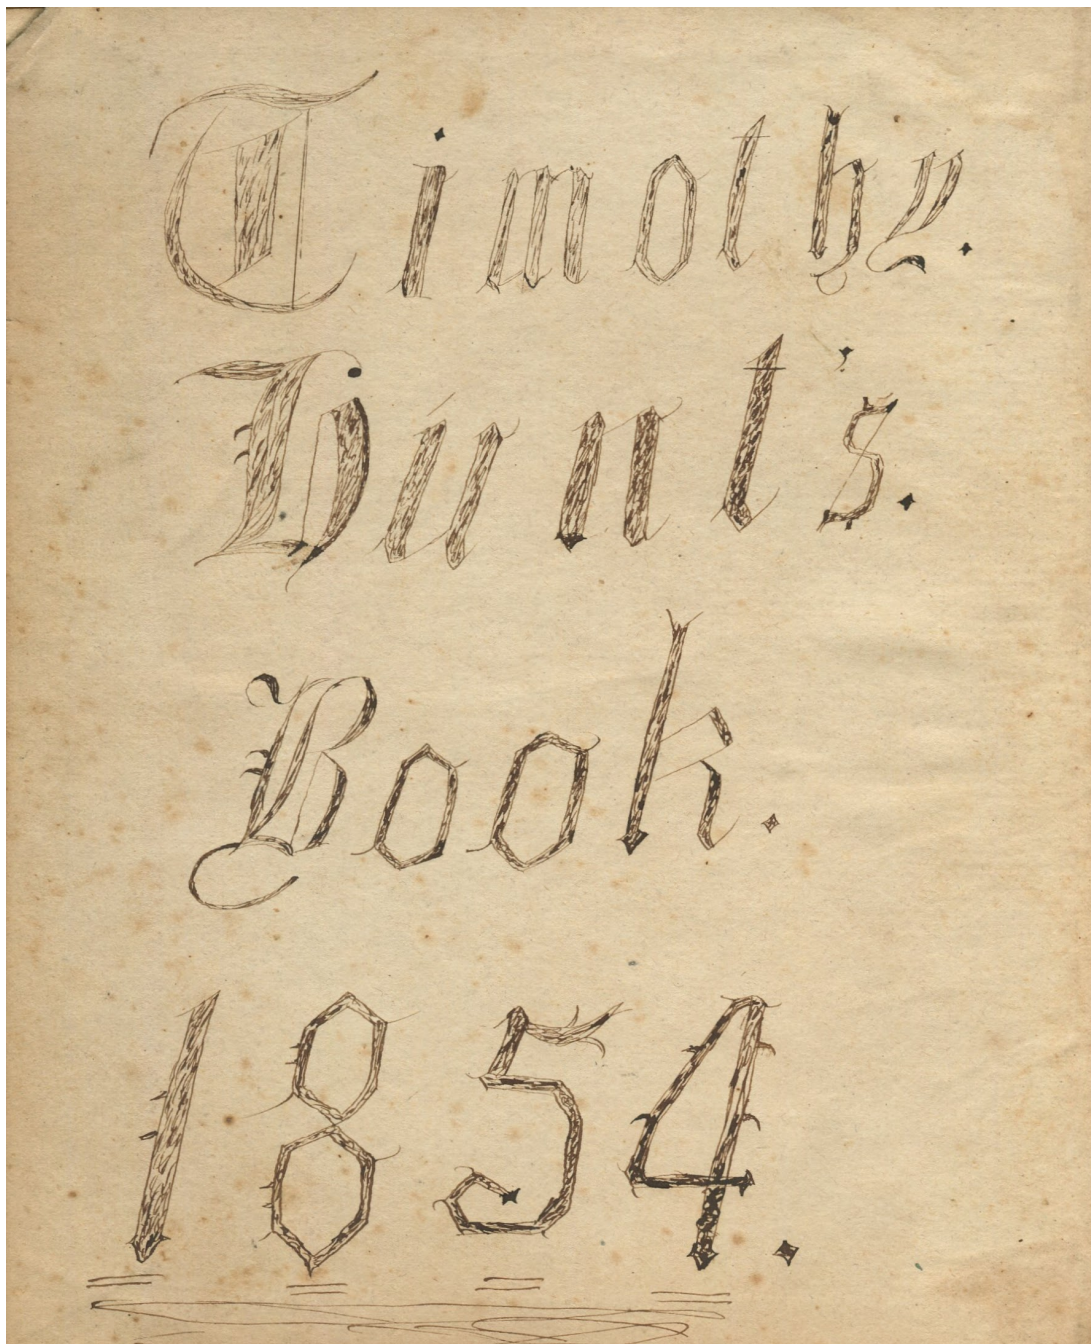 Timothy.
Hunt's.
Book.
1854.